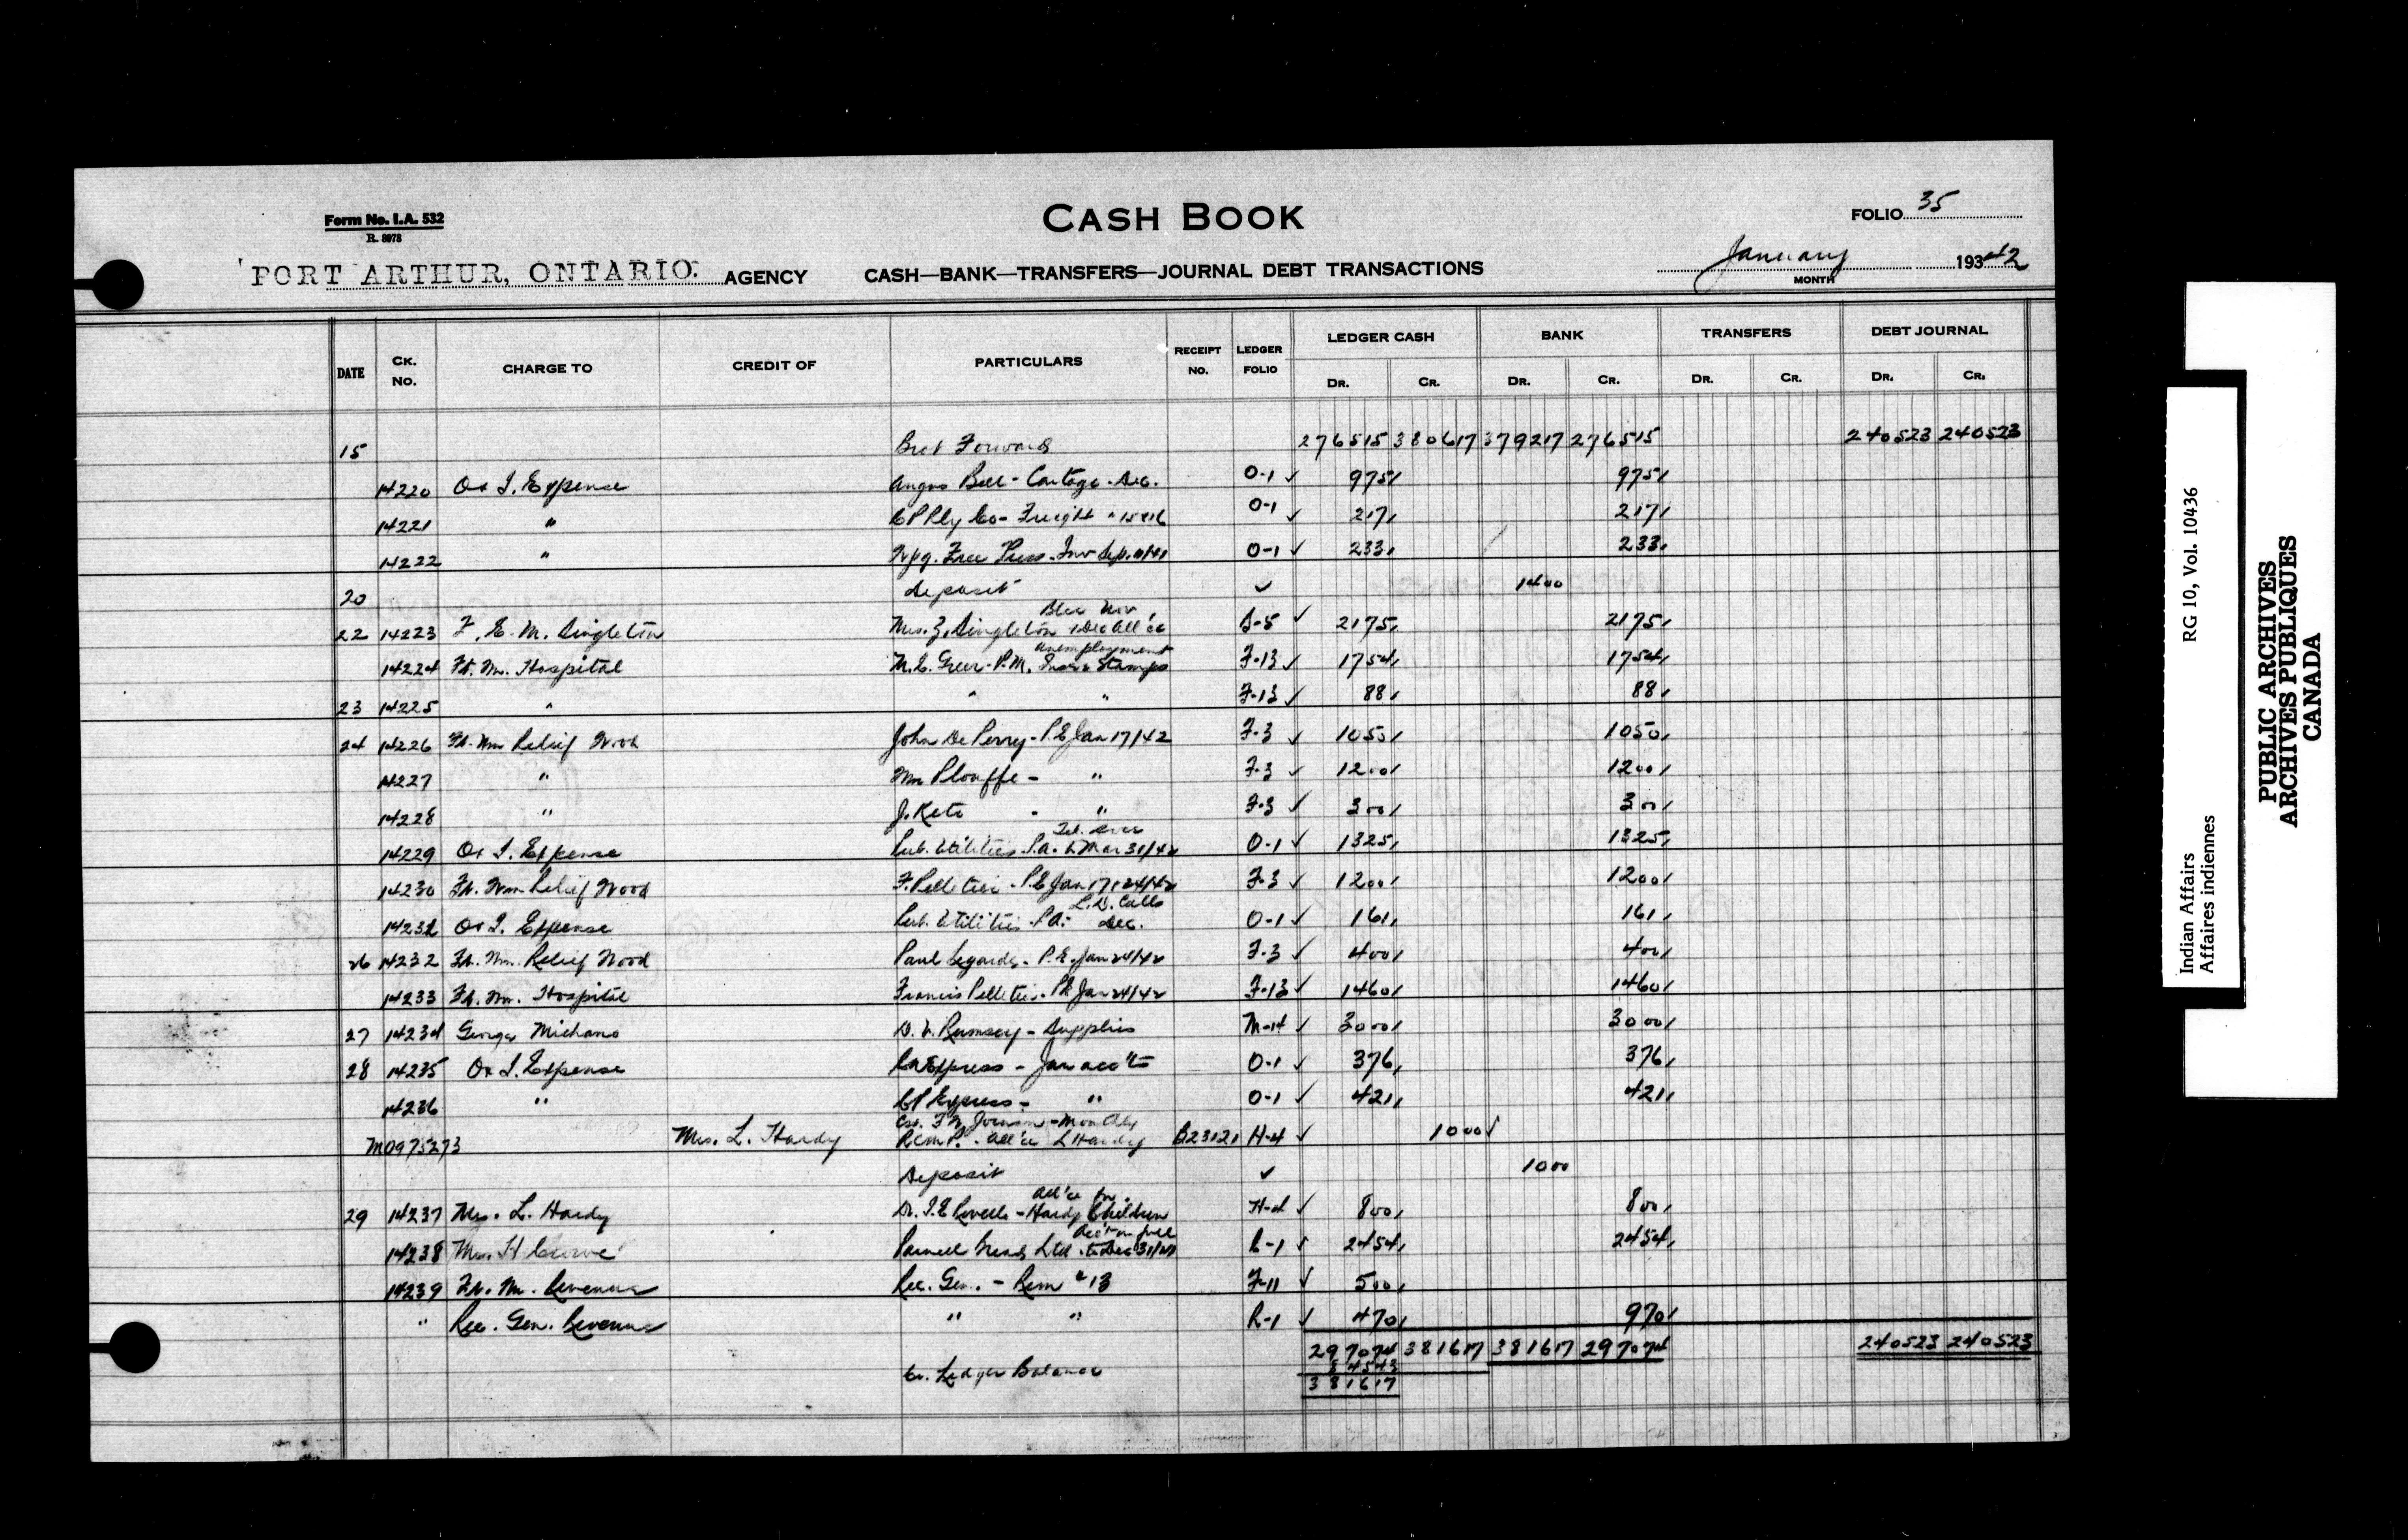 Form No. I.A. 532
R. 8978
CASH BOOK
FOLIO 35
PORT ARTHUR, ONTARIO. AGENCY CASH—BANK—TRANSFERS—JOURNAL DEBT TRANSACTIONS
January 193 42
MONTH
DATE CK. NO. CHARGE TO CREDIT OF PARTICULARS RECEIPT NO. LEDGER FOLIO LEDGER CASH BANK TRANSFERS DEBT JOURNAL
DR. CR. DR. CR. DR. CR. DR. CR.
15 Brot Forward 276515 380617 379217 276515 240523 240523
14220 O & I. Expense Angus Bell - Cartage - Dec. O-1 ✓ 975 975
14221 " C P Rly Co - Freight O-1 ✓ 217 217
14222 " Wpg. Free Press - Inv O-1 ✓ 233 233
20 Deposit ✓ 1400
22 14223 F. E. M. Singleton Mrs. Z. Singleton Nov & Dec All'ce S-5 ✓ 2175 2175
14224 Ft. Wm. Hospital N. E. Greer - P.M. Unemployment Stamps F-13 ✓ 1754 1754
23 14225 " " " F-13 ✓ 88 88
24 14226 Ft. Wm Relief Wood John De Perry - P.E Jan 17/42 F-3 ✓ 1050 1050
14227 " Wm Plouffe - " F-3 ✓ 1200 1200
14228 " J. Keto - " F-3 ✓ 300 300
14229 O & I. Expense Pub. Utilities P.A. to Mar 31/42 O-1 ✓ 1325 1325
14230 Ft. Wm Relief Wood F. Pelletier - P.E Jan 17 & 24/42 F-3 ✓ 1200 1200
14231 O & I. Expense Pub. Utilities - P.A. L.D. Calls Dec. O-1 ✓ 161 161
26 14232 Ft. Wm. Relief Wood Paul Legarde - P.E. Jan 24/42 F-3 ✓ 400 400
14233 Ft. Wm. Hospital Francis Pelletier - PE Jan 24/42 F-13 ✓ 1460 1460
27 14234 George Michano Rumsey - Supplies M-14 ✓ 3000 3000
28 14235 O & I. Expense CN Express - Jan acc'ts O-1 ✓ 376 376
14236 " CP Express - " O-1 ✓ 421 421
MO975273 Mrs. L. Hardy R.C.M.P. - Monthly All'ce L Hardy B23121 H-4 ✓ 1000 ✓
Deposit ✓ 1000
29 14237 Mrs. L. Hardy All'ce for Hardy Children H-4 ✓ 800 800
14238 Mrs. H Acc't in full to Dec 31/41 C-1 ✓ 2454 2454
14239 Ft. Wm. Revenue Rec. Gen. - Rem # 13 F-11 ✓ 500
" Rec. Gen. Revenue " " R-1 ✓ 470 970
297074 381617 381617 297074 240523 240523
Cr. Ledger Balance 84543
381617
Indian Affairs RG 10, Vol. 10436
Affaires indiennes
PUBLIC ARCHIVES
ARCHIVES PUBLIQUES
CANADA